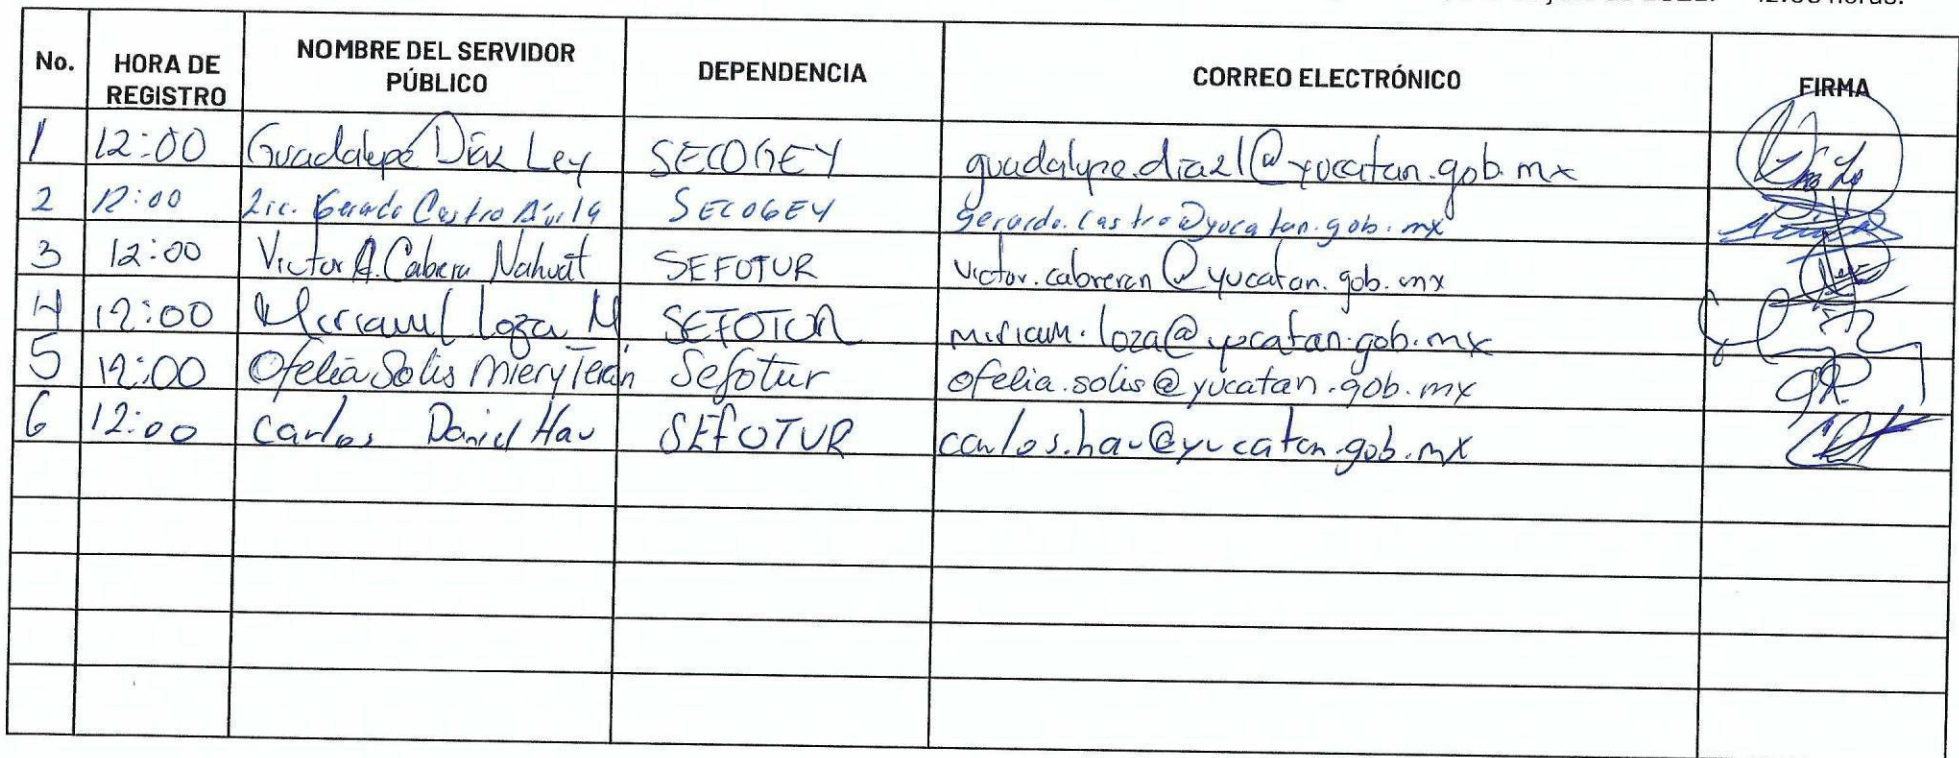 12:00 horas.
No. HORA DE REGISTRO NOMBRE DEL SERVIDOR PÚBLICO DEPENDENCIA CORREO ELECTRÓNICO FIRMA
1 12:00 Guadalupe Díaz Ley SECOGEY guadalupe.diazl@yucatan.gob.mx
2 12:00 Lic. Gerardo Castro Ávila SECOGEY gerardo.castro@yucatan.gob.mx
3 12:00 Victor A. Cabrera Nahuat SEFOTUR victor.cabreran@yucatan.gob.mx
4 12:00 Miriam Loza M SEFOTUR miriam.loza@yucatan.gob.mx
5 12:00 Ofelia Solis Mier y Terán Sefotur ofelia.solis@yucatan.gob.mx
6 12:00 Carlos Daniel Hau SEFOTUR carlos.hau@yucatan.gob.mx